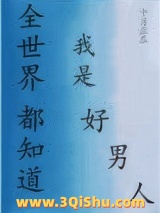 全世界都知道
我是好男人
十月盛恋
www.3Qishu.com